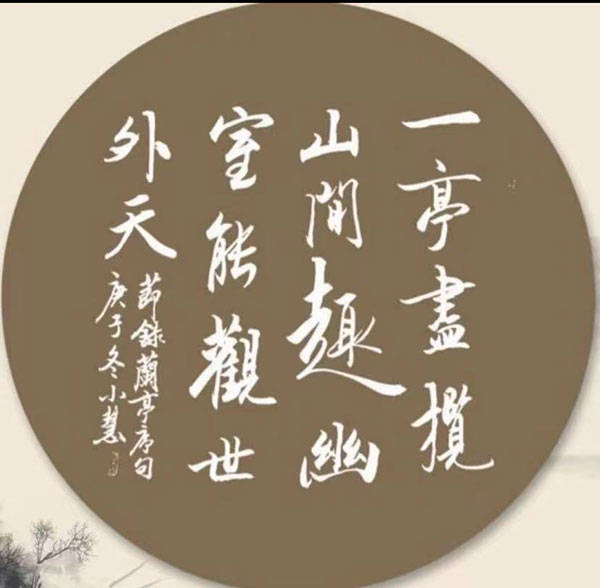 一亭盡攬
山間趣幽
室能觀世
外天
節錄蘭亭序句
庚子冬小慧